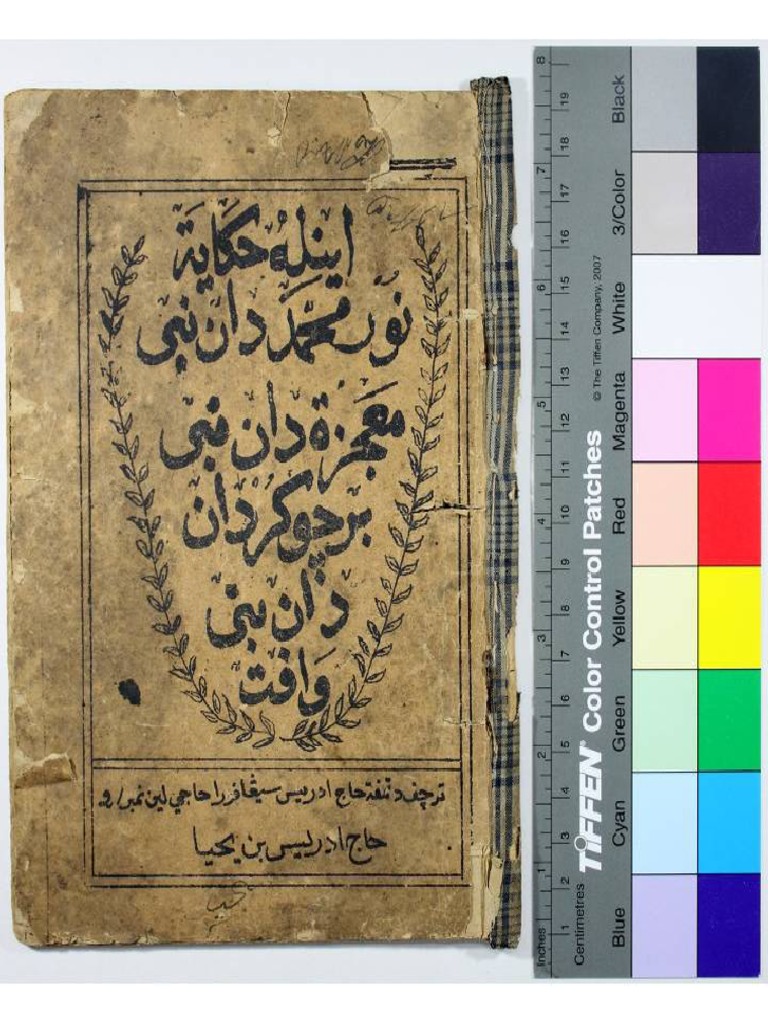 اينله حكاية
نور محمد دان نبي
معجزة دان نبي
برچوكر دان
دان نبي
وافت
ترچف دتمفة حاج ادريس سيڠافورا حاجي لين نمبر
حاج ادريس بن يحيا
Inches
Centimetres
1 2 3 4 5 6 7 8
1 2 3 4 5 6 7 8 9 10 11 12 13 14 15 16 17 18 19
TIFFEN® Color Control Patches
© The Tiffen Company, 2007
Blue
Cyan
Green
Yellow
Red
Magenta
White
3/Color
Black